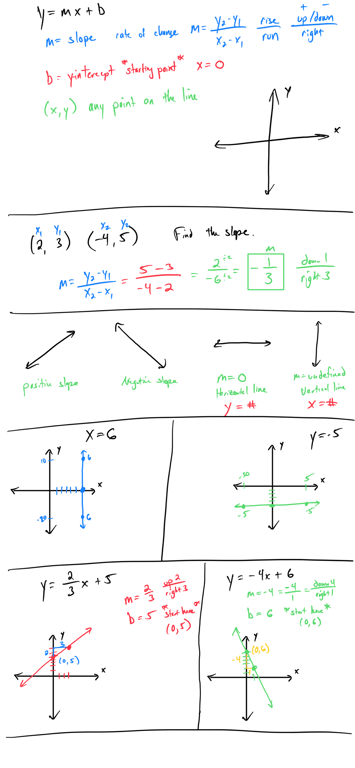 y = mx + b
m = slope rate of change m = y₂-y₁ / x₂-x₁ rise / run + up / down - / right
b = y intercept *starting point* x = 0
(x, y) any point on the line
y
x
x₁ y₁ x₂ y₂
(2, 3) (-4, 5) Find the slope.
m
m = y₂-y₁ / x₂-x₁ = 5-3 / -4-2 = 2÷2 / -6÷2 = -1/3 down 1 / right 3
positive slope
Negative slope
m = 0
Horizontal line
y = #
m = undefined
Vertical line
x = #
x = 6
y
10
6
x
6
y = -5
y
5
x
-5
5
y = 2/3 x + 5
m = 2/3 up 2 / right 3
b = 5 *start here*
(0, 5)
y
3
2
(0, 5)
x
y = -4x + 6
m = -4 = -4/1 = down 4 / right 1
b = 6 *start here*
(0, 6)
y
(0, 6)
-4
x